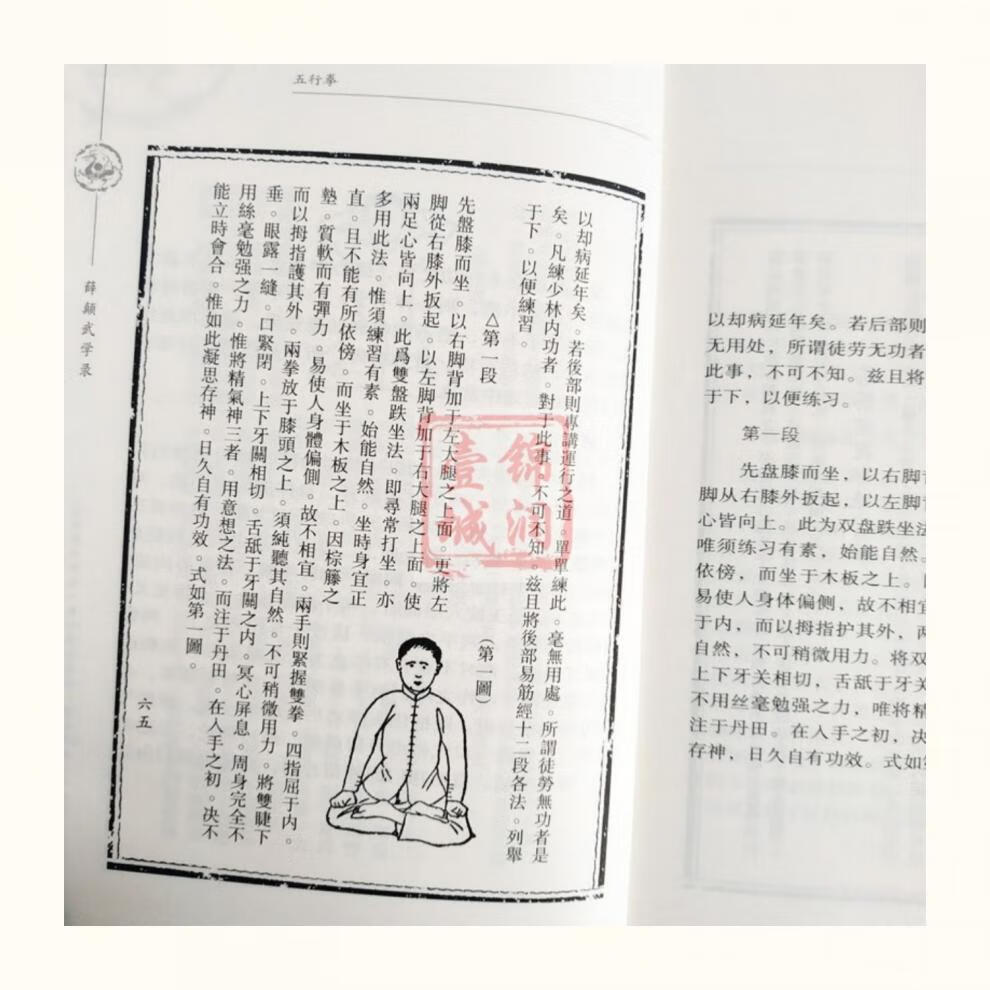 五行拳
薛顛武学录
以却病延年矣。若後部則專講運行之道。單單練此。毫無用處。所謂徒勞無功者是
矣。凡練少林内功者。對于此事。不可不知。兹且將後部易筋經十二段各法。列舉
于下。以便練習。
△第一段
（第一圖）
先盤膝而坐。以右脚背加于左大腿之上面。更將左
脚從右膝外扳起。以左脚背加于右大腿之上面。使
兩足心皆向上。此爲雙盤趺坐法。即尋常打坐。亦
多用此法。惟須練習有素。始能自然。坐時身宜正
直。且不能有所依傍。而坐于木板之上。因棕籐之
墊。質軟而有彈力。易使人身體偏側。故不相宜。兩手則緊握雙拳。四指屈于内。
而以拇指護其外。兩拳放于膝頭之上。須純聽其自然。不可稍微用力。將雙睫下
垂。眼露一縫。口緊閉。上下牙關相切。舌舐于牙關之内。冥心屏息。周身完全不
用絲毫勉强之力。惟將精氣神三者。用意想之法。而注于丹田。在入手之初。决不
能立時會合。惟如此凝思存神。日久自有功效。式如第一圖。
六五
錦潤
壹誠
以却病延年矣。若后部则
无用处，所谓徒劳无功者
此事，不可不知。兹且将
于下，以便练习。
第一段
先盘膝而坐，以右脚背
脚从右膝外扳起，以左脚
心皆向上。此为双盘趺坐法
唯须练习有素，始能自然。
依傍，而坐于木板之上。
易使人身体偏侧，故不相宜
于内，而以拇指护其外，两
自然，不可稍微用力。将双
上下牙关相切，舌舐于牙关
不用丝毫勉强之力，唯将精
注于丹田。在入手之初，决
存神，日久自有功效。式如